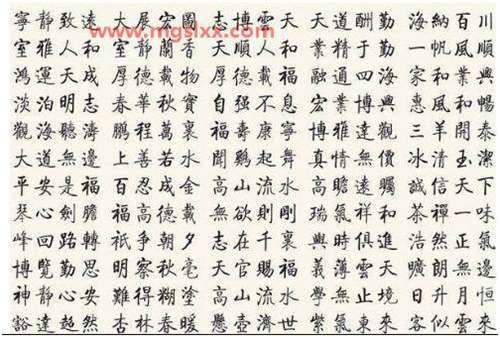 www.mgslxx.com
寧靜致遠 大展宏圖 志博雲天 天道酬勤 海納百川
室雅人和 室靜蘭香 天順人和 業精于勤 一帆風順
鴻運天成 厚德載物 厚德載福 融通四海 家和業興
淡泊明志 春華秋實 自强不息 宏業博興 惠風和暢
觀海聽濤 鵬程萬裏 福壽康寧 博雅達觀 三羊開泰
大道無邊 上善若水 聞鷄起舞 真情無價 冰清玉潔
平安是福 百忍成金 高山流水 高瞻遠矚 誠信天下
琴心劍膽 福高德載 無欲則剛 瑞氣祥和 茶禪一味
峰回路轉 祇爭朝夕 志在千裏 興時俱進 浩然正氣
博覽勤思 明察秋毫 天官賜福 義薄雲天 曠朗無邊
神靜心安 難得糊塗 高山流水 學無止境 日升月恒
豁達超然 杏林春暖 懸壺濟世 紫氣東來 客似雲來